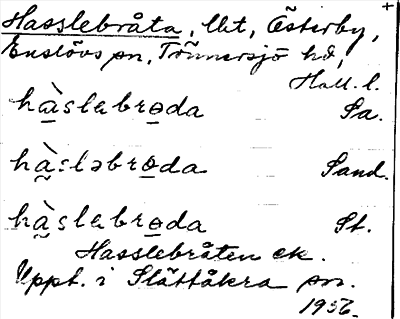 Hasslebråta, lht, Österby, +
Enslövs sn, Tönnersjö hd,
Hall. l.
hàslabroda Sa.
hà:sləbroda Sand.
hàslabroda St.
Hasslebråten ek.
Uppt. i Slättåkra sn.
1956.